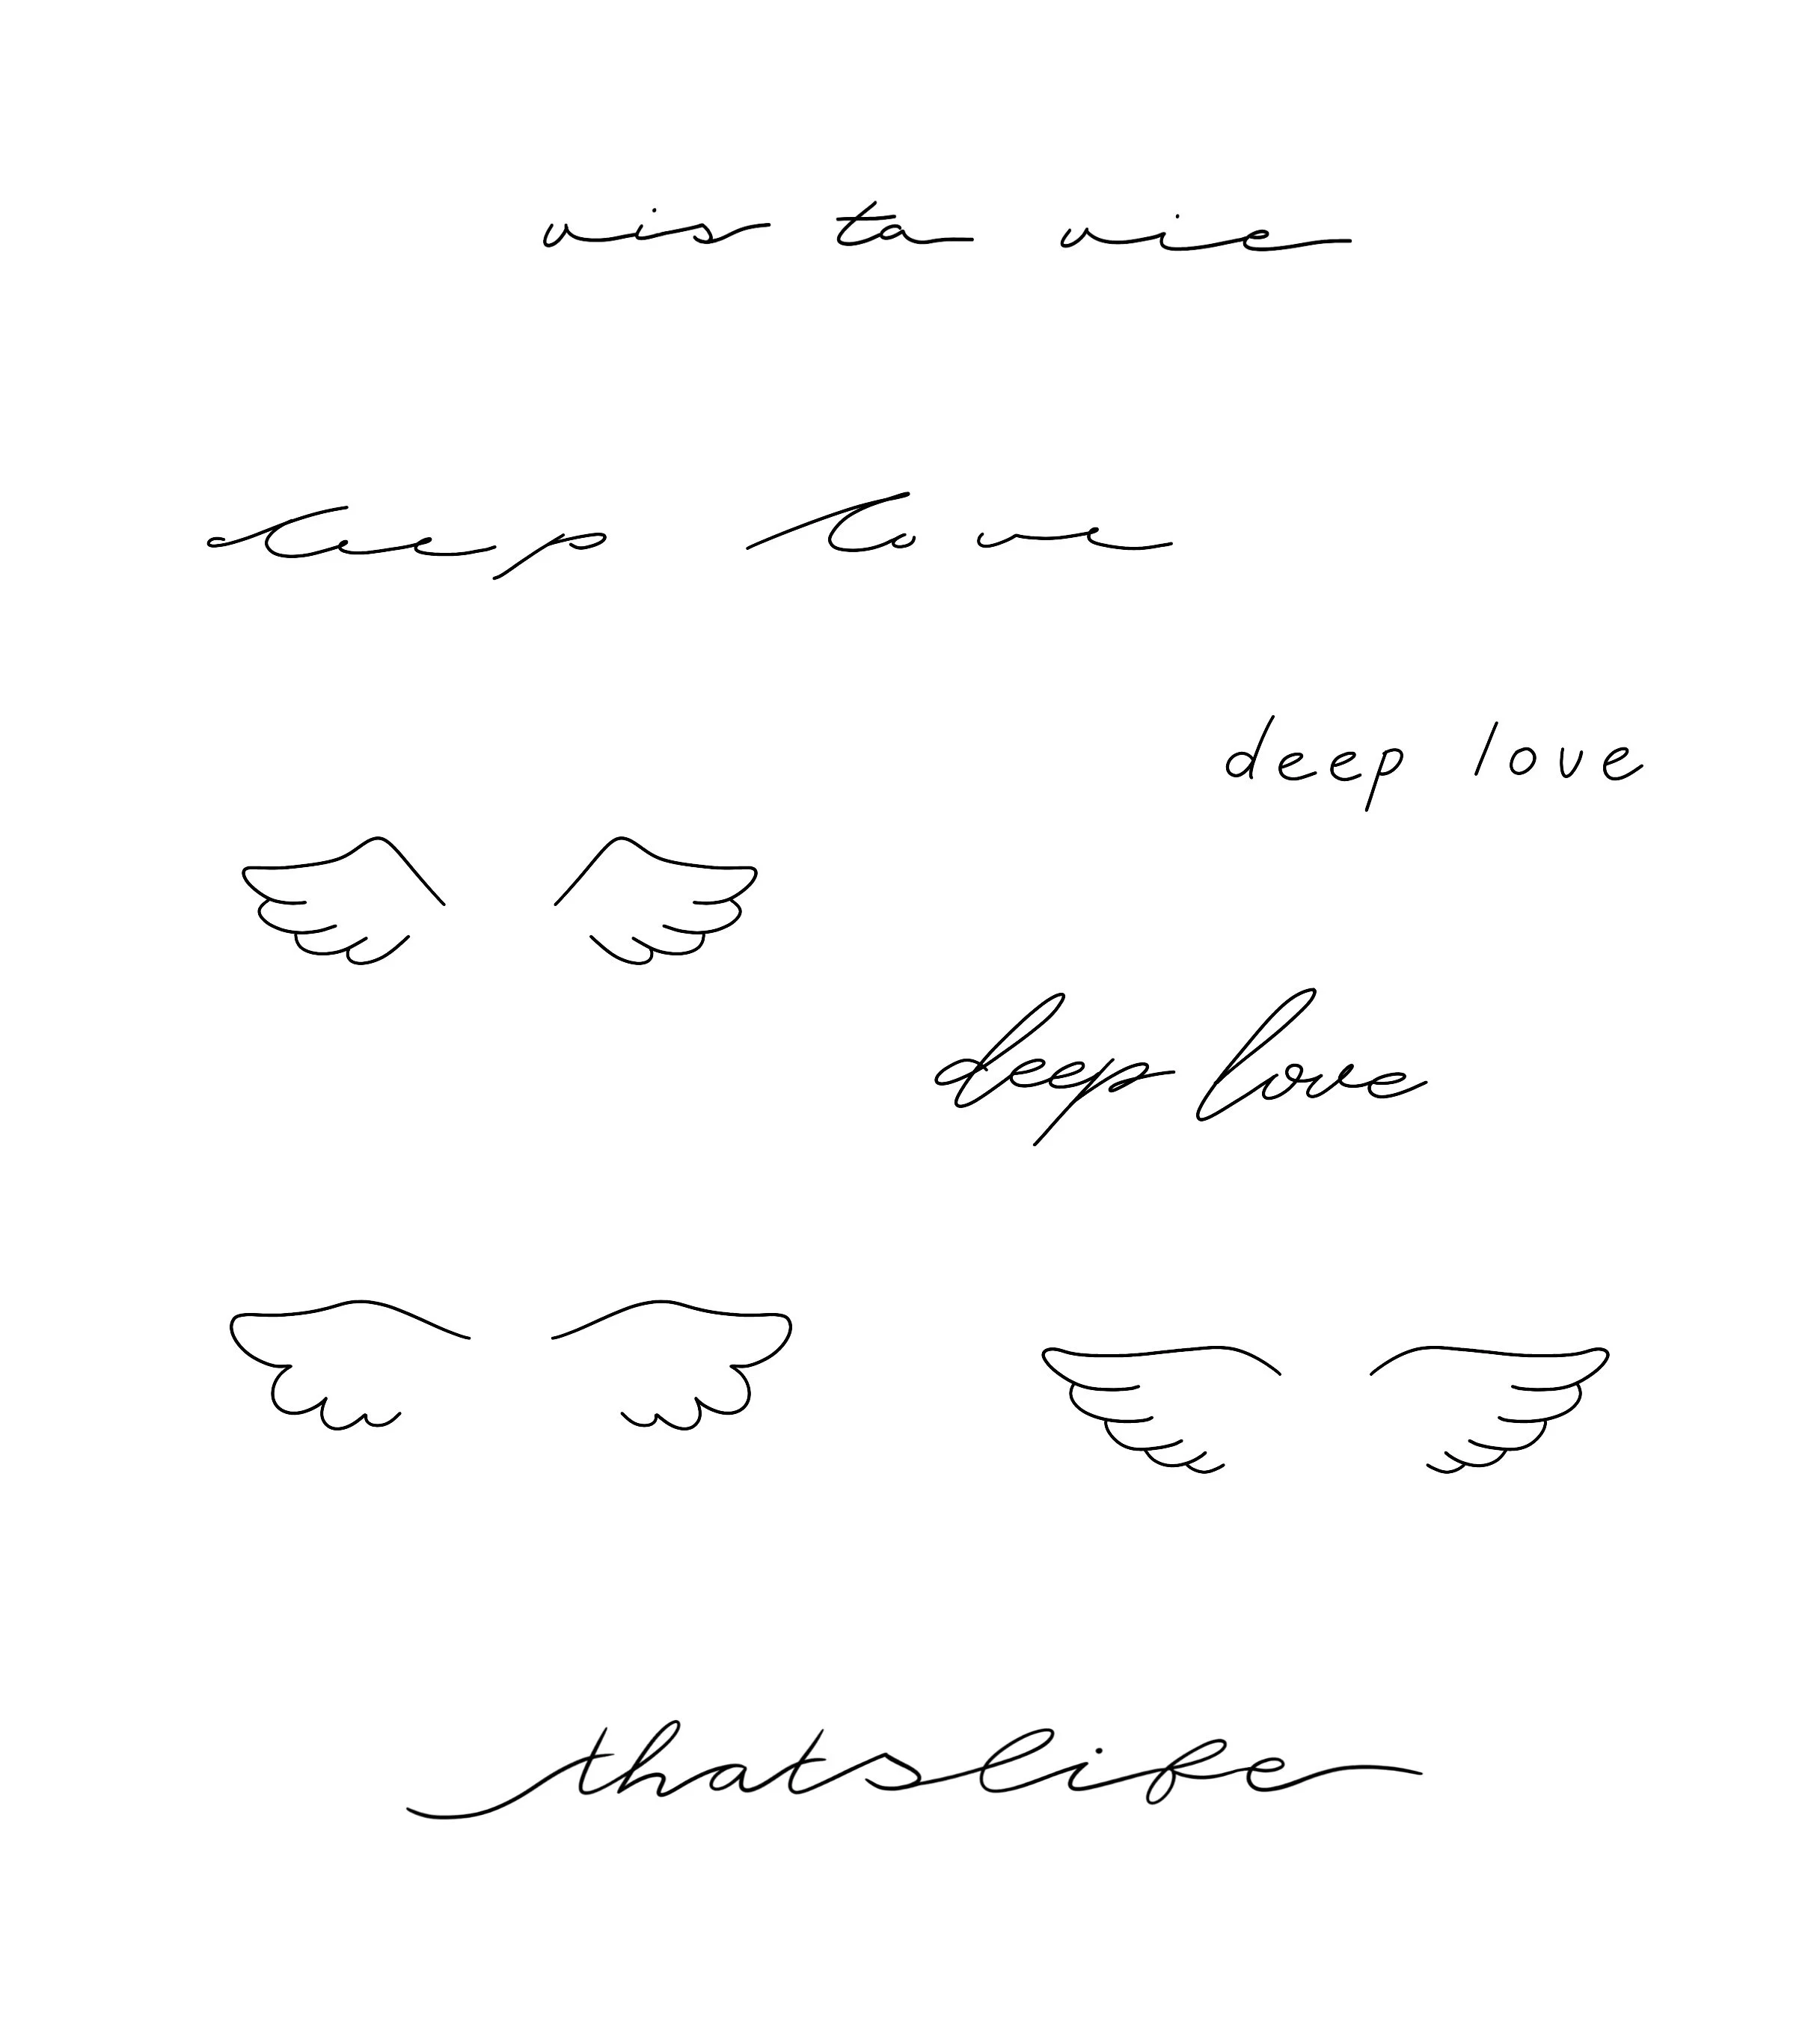 vis ta vie
deep love
deep love
deep love
thats life